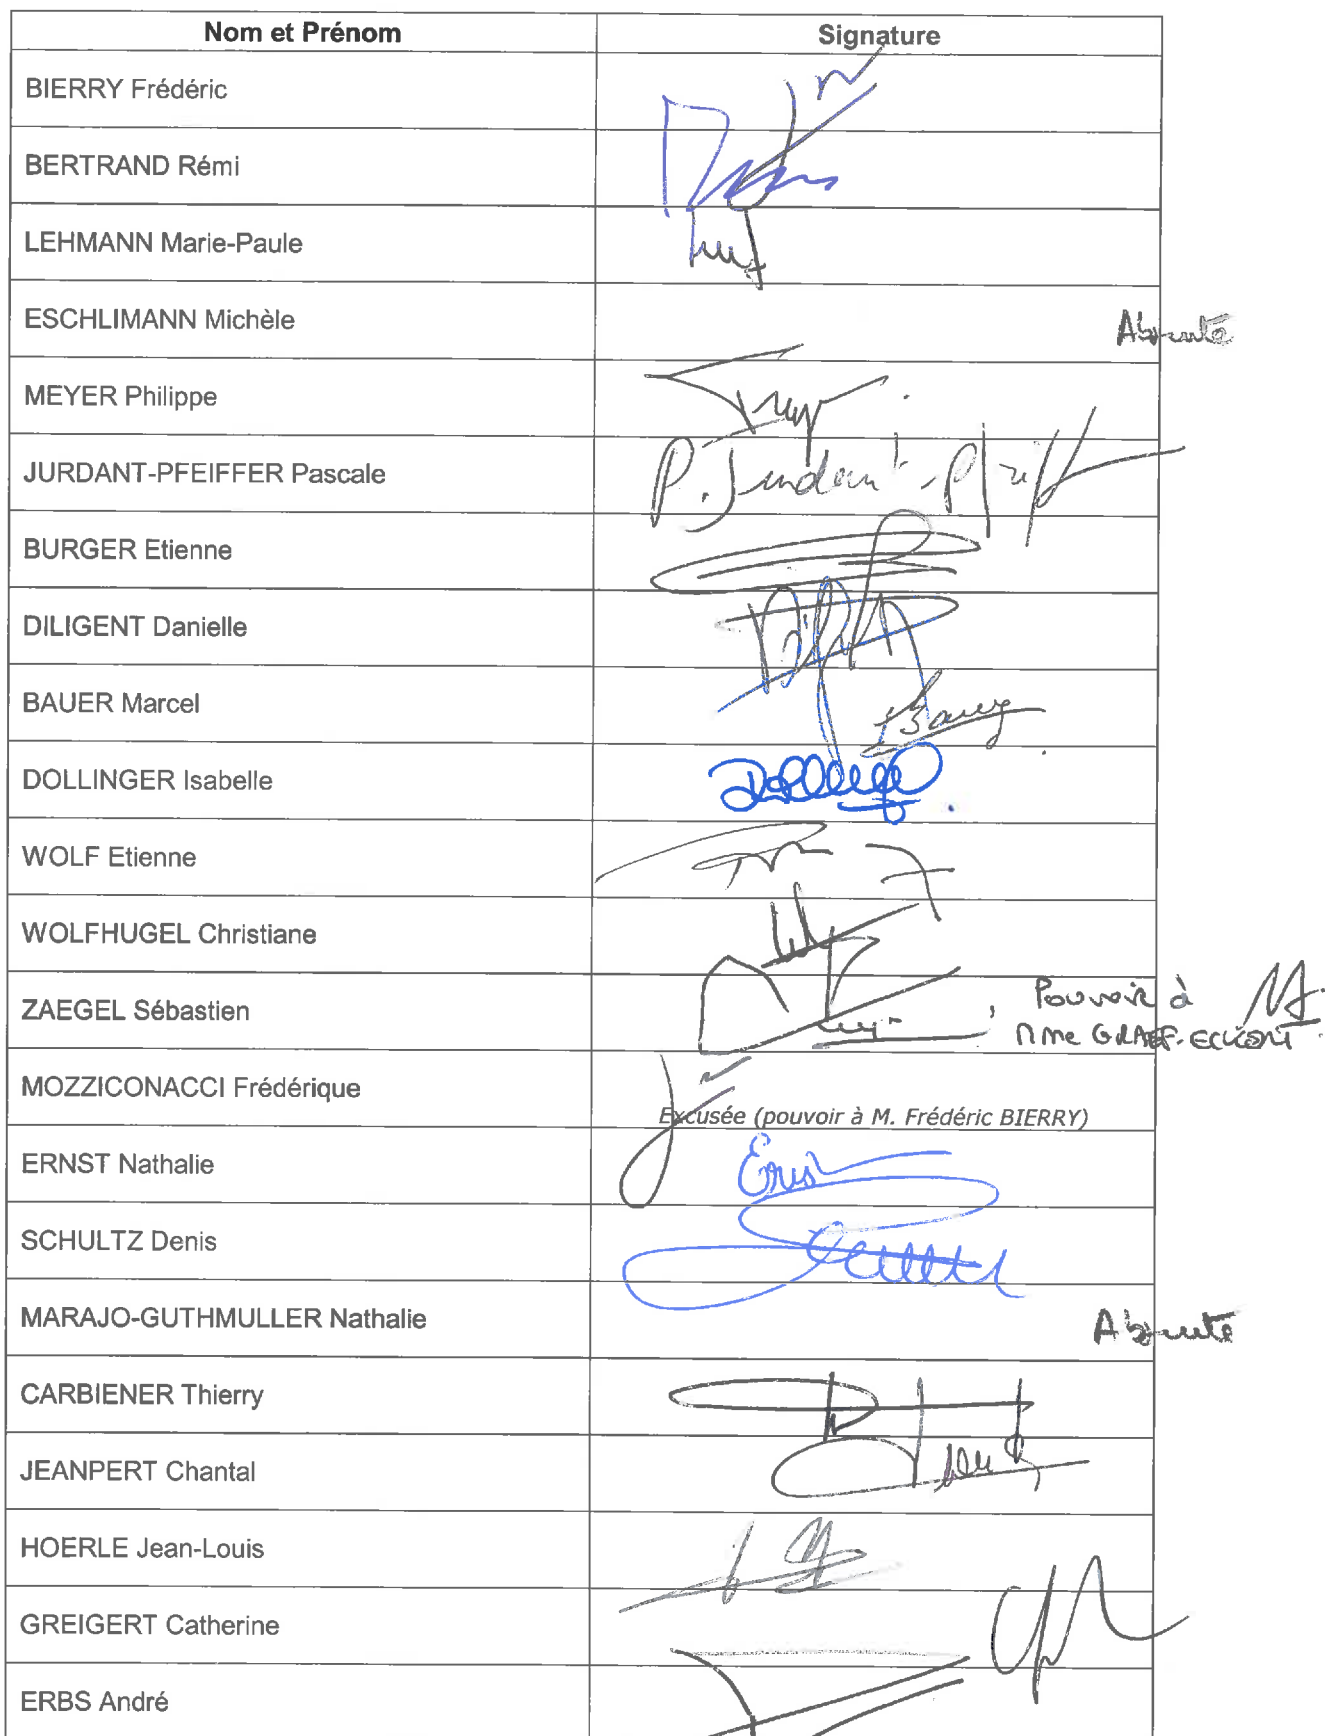 Nom et Prénom Signature
BIERRY Frédéric
BERTRAND Rémi
LEHMANN Marie-Paule
ESCHLIMANN Michèle Absente
MEYER Philippe
JURDANT-PFEIFFER Pascale P. Jurdant-Pfeiff
BURGER Etienne
DILIGENT Danielle
BAUER Marcel Bauer
DOLLINGER Isabelle Dollinger
WOLF Etienne
WOLFHUGEL Christiane
ZAEGEL Sébastien Pouvoir à
Mme GRAEF-ECKERT
MOZZICONACCI Frédérique
Excusée (pouvoir à M. Frédéric BIERRY)
ERNST Nathalie Ernst
SCHULTZ Denis
MARAJO-GUTHMULLER Nathalie Absente
CARBIENER Thierry
JEANPERT Chantal
HOERLE Jean-Louis
GREIGERT Catherine
ERBS André